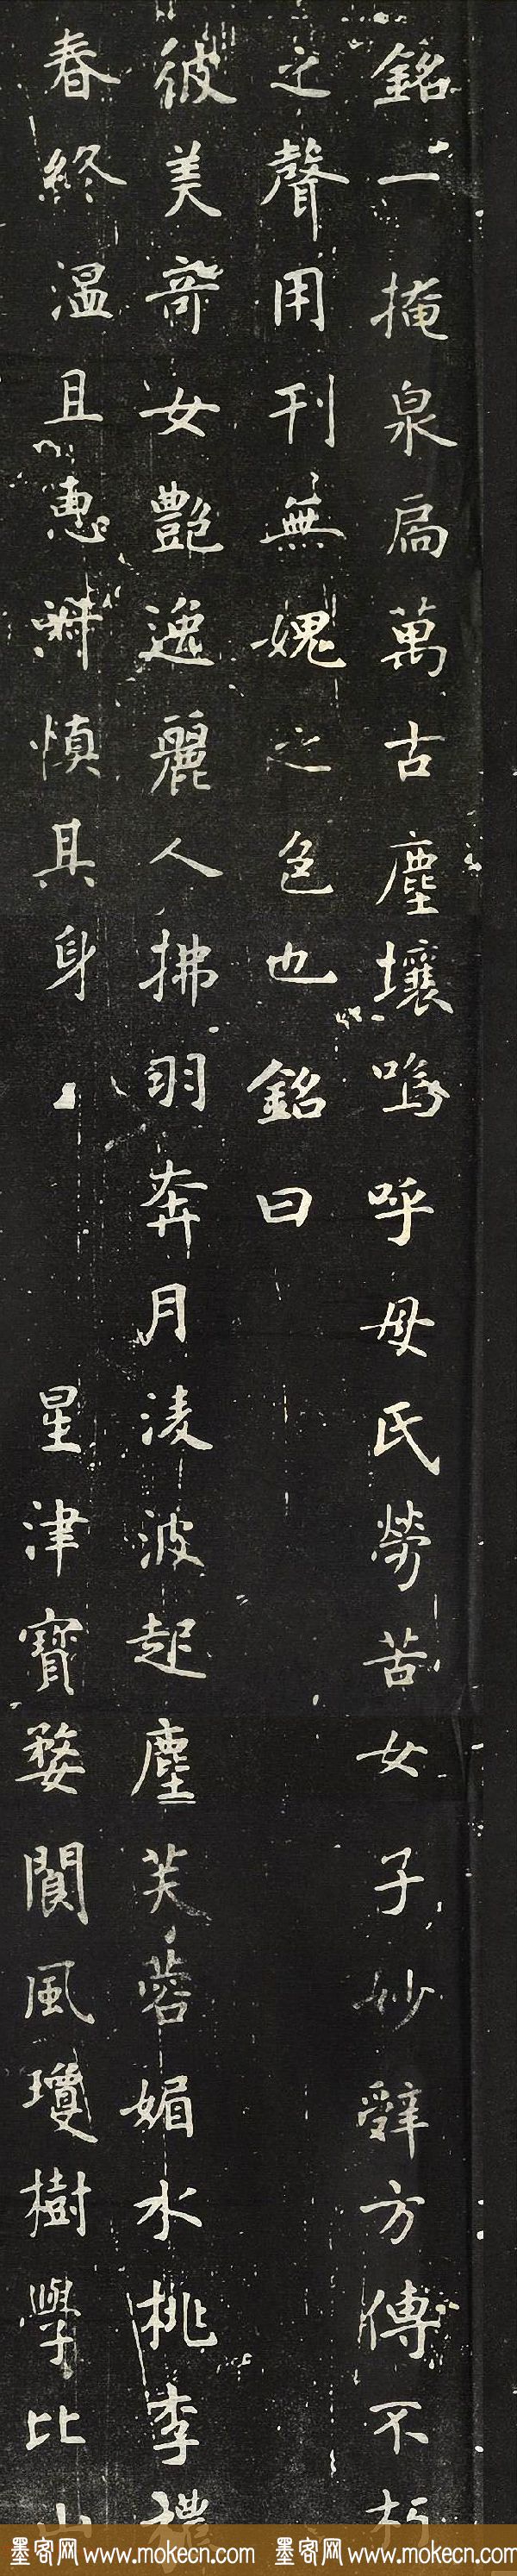 銘一掩泉扃萬古塵壤嗚呼母氏勞苦女子妙辭方傳不朽
之聲用刊無媿之色也銘曰
彼美奇女艷逸麗人拂羽奔月淩波起塵芙蓉媚水桃李穠
春終溫且惠淑慎其身 星津寶婺閬風瓊樹學比山
墨客网 www.mokecn.com 墨客网 www.mokecn.com